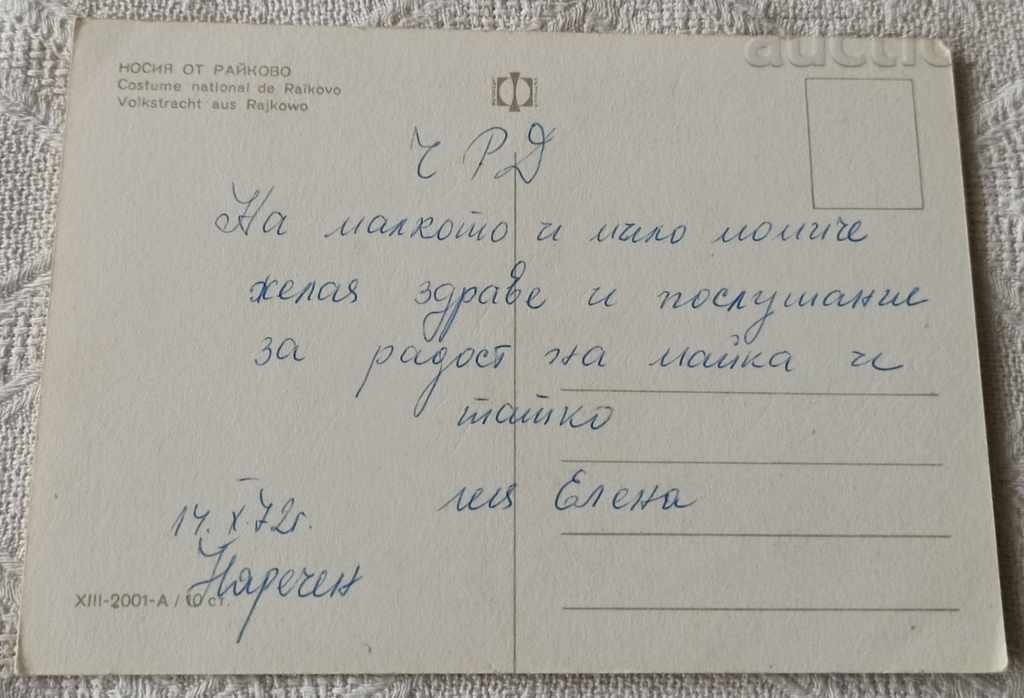 НОСИЯ ОТ РАЙКОВО
Costume national de Raïkovo
Volkstracht aus Rajkowo
Ч Р Д
На малкото и мило момиче
желая здраве и послушание
за радост на майка и
татко
Елена
14. X.72г.
Наречен
XIII-2001-А / 10 ст.